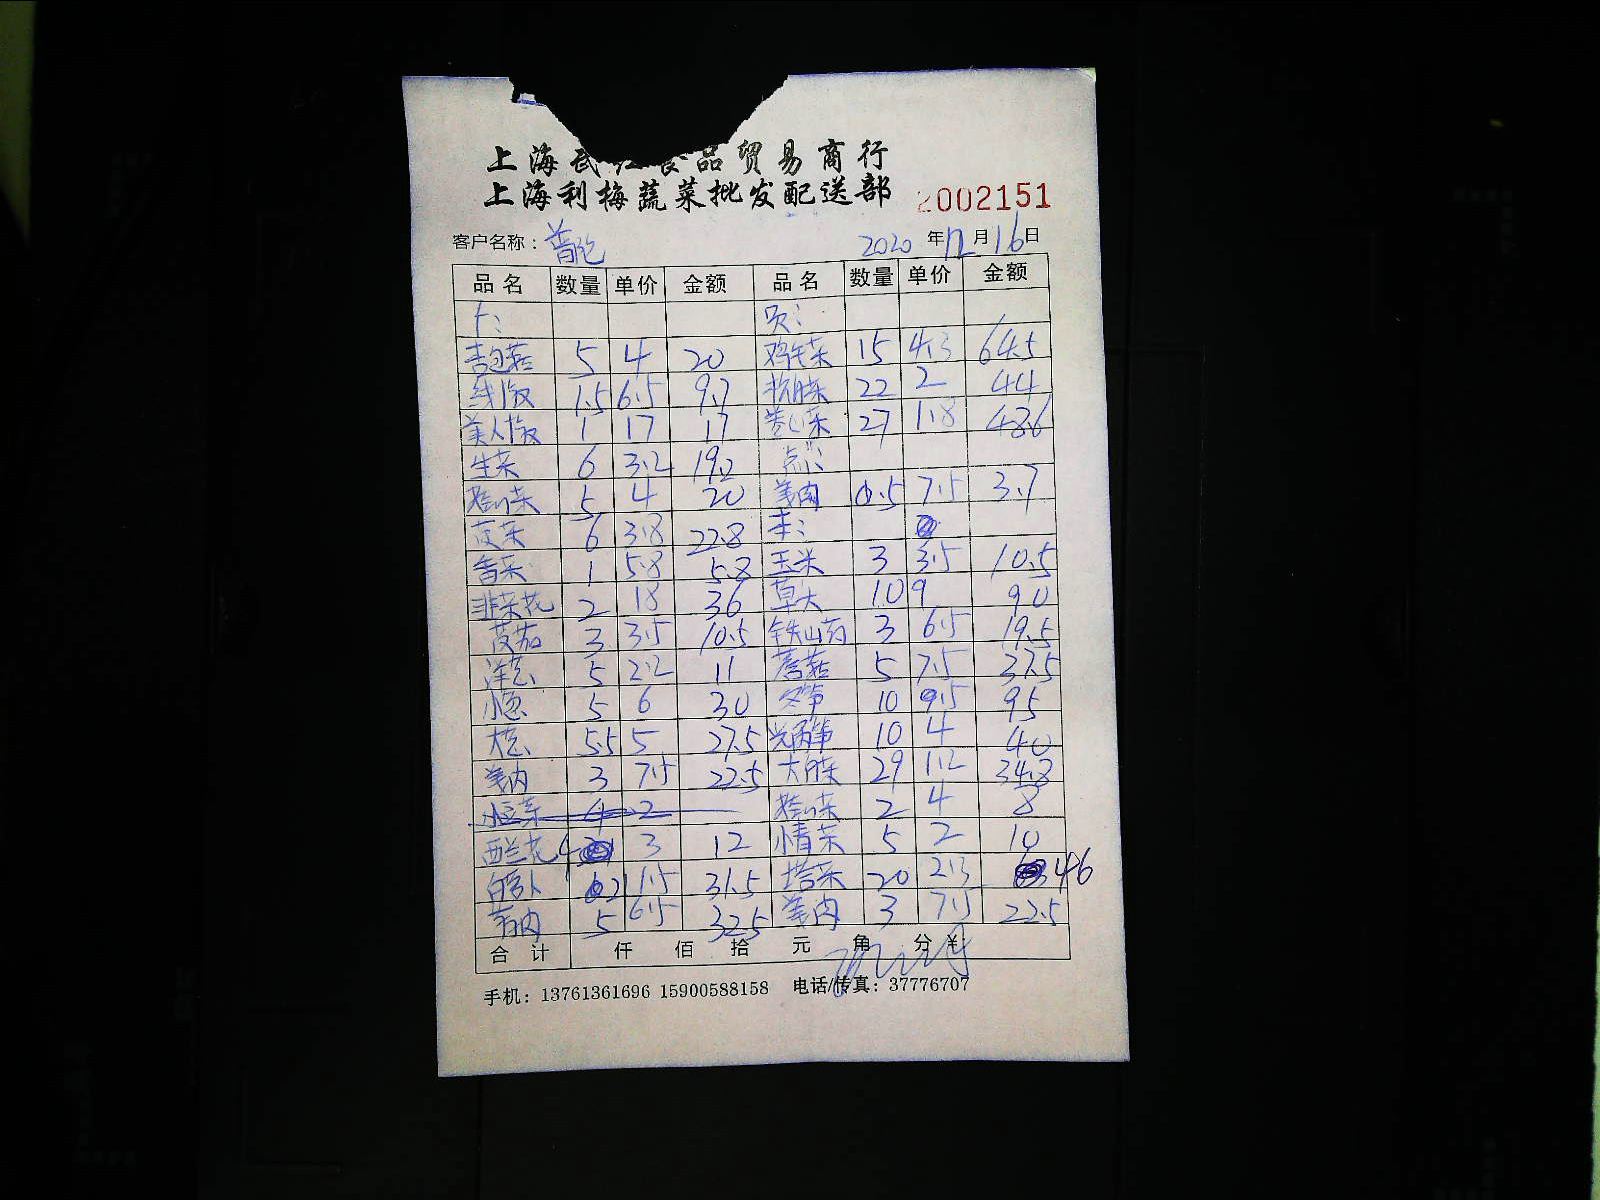 上海武 食品贸易商行
上海利梅蔬菜批发配送部 2002151
客户名称： 2020 年 12 月 16 日
品名 数量 单价 金额 品名 数量 单价 金额
杏包菇 5 4 20 鸡毛菜 15 4.3 64.5
线椒 1.5 6.5 9.7 22 2 44
美人椒 1 17 17 卷心菜 27 1.8 48.6
生菜 6 3.2 19.2 点:
5 4 20 姜肉 0.5 7.5 3.7
6 3.8 22.8
香菜 1 5.8 5.8 玉米 3 3.5 10.5
韭菜花 2 18 36 草大 10 9 90
茄 3 3.5 10.5 铁山药 3 6.5 19.5
洋葱 5 2.2 11 蘑菇 5 7.5 37.5
小葱 5 6 30 冬笋 10 9.5 95
大葱 5.5 5 27.5 10 4 40
姜肉 3 7.5 22.5 大白菜 29 1.2 34.8
4 2 2 4 8
西兰花 4 3 12 5 2 10
白萝卜 21 1.5 31.5 塔菜 20 2.3 46
5 6.5 32.5 姜肉 3 7.5 22.5
合计 仟 佰 拾 元 角 分 ¥:
手机：13761361696 15900588158 电话/传真：37776707